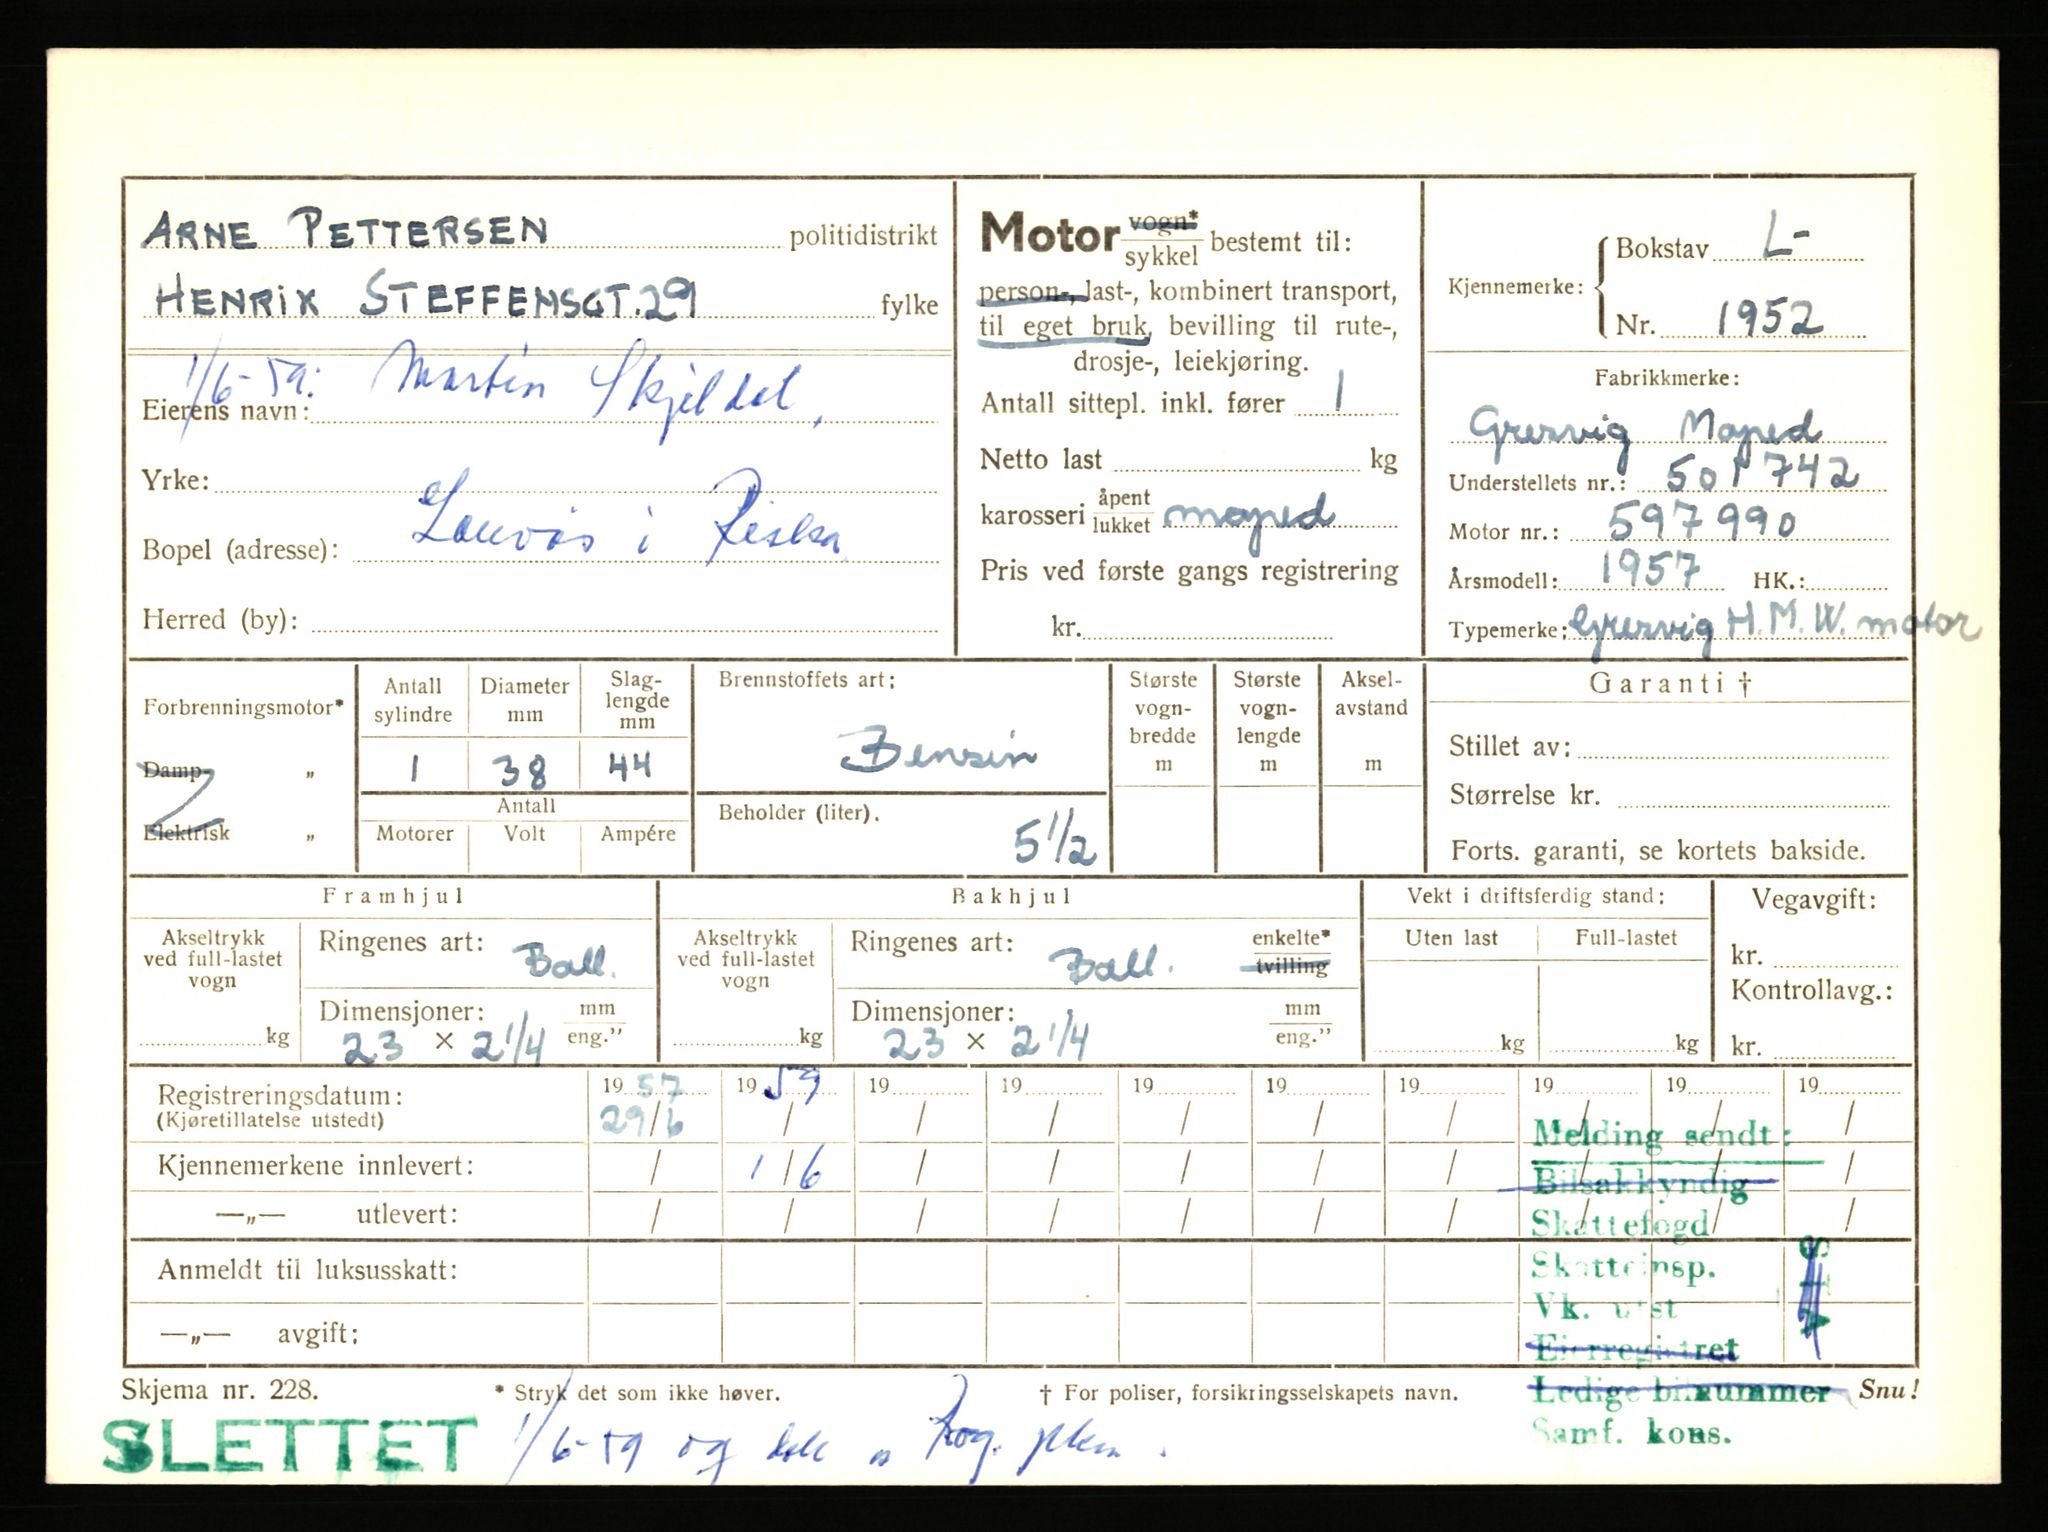 ARNE PETTERSEN politidistrikt
HENRIK STEFFENSGT. 29 fylke
1/6-59: Martin Skjeldal,
Eierens navn:
Yrke:
Bopel (adresse): i Riska
Herred (by):
Motor vogn* / sykkel bestemt til:
person-, last-, kombinert transport,
til eget bruk, bevilling til rute-,
drosje-, leiekjøring.
Antall sittepl. inkl. fører 1
Netto last kg
karosseri åpent / lukket moped
Pris ved første gangs registrering
kr.
Kjennemerke: Bokstav L-
Nr. 1952
Fabrikkmerke:
Gresvig Moped
Understellets nr.: 501742
Motor nr.: 597990
Årsmodell: 1957 HK.:
Typemerke: Gresvig H.M.W. motor
Forbrenningsmotor*
Damp- „
Elektrisk „
Antall sylindre Diameter mm Slag-lengde mm
1 38 44
Antall
Motorer Volt Ampére
Brennstoffets art:
Bensin
Beholder (liter).
5 1/2
Største vogn-bredde m
Største vogn-lengde m
Aksel-avstand m
Garanti †
Stillet av:
Størrelse kr.
Forts. garanti, se kortets bakside.
Framhjul
Akseltrykk ved full-lastet vogn
kg
Ringenes art: Ball.
Dimensjoner: mm / eng."
23 × 2 1/4
Bakhjul
Akseltrykk ved full-lastet vogn
kg
Ringenes art: Ball. enkelte* / tvilling
Dimensjoner: mm / eng."
23 × 2 1/4
Vekt i driftsferdig stand:
Uten last Full-lastet
kg kg
Vegavgift:
kr.
Kontrollavg.:
kr.
Registreringsdatum: 1957 1959 19 19 19 19 19 19 19 19
(Kjøretillatelse utstedt) 29/6 / / / / / / / / /
Kjennemerkene innlevert: / 1/6 / / / / / / / /
—„— utlevert: / / / / / / / / / /
Anmeldt til luksusskatt:
—„— avgift:
Melding sendt:
Bilsakkyndig
Skattefogd
Skatteinsp.
Vk. utst
Eierregistret
Ledige bilnummer
Samf. kons.
Skjema nr. 228. * Stryk det som ikke høver. † For poliser, forsikringsselskapets navn. Snu!
SLETTET 1/6-59 og